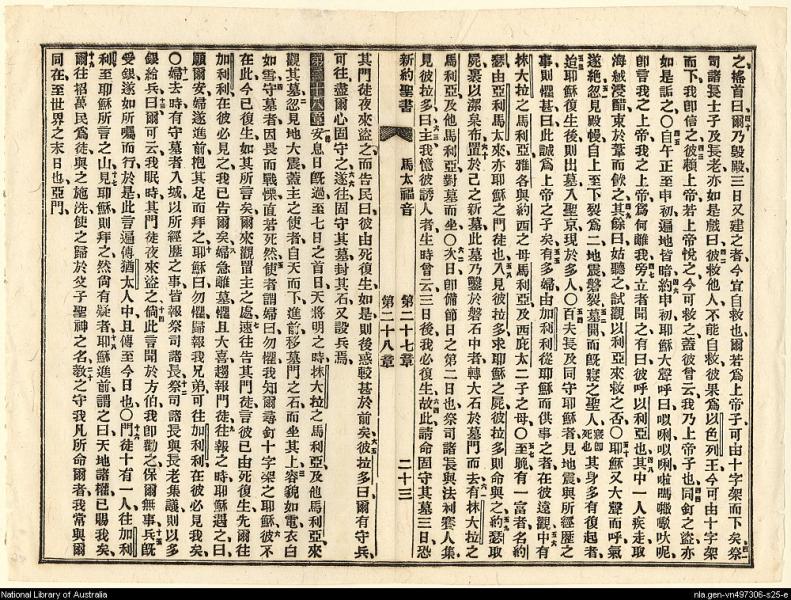 之搖首曰爾乃毀殿三日又建之者今宜自救也爾若爲上帝子可由十字架而下矣祭
司諸長士子及長老亦如是戲曰彼救他人不能自救彼果爲以色列王今可由十字架
而下我卽信之彼賴上帝若上帝悅之今可救之蓋彼曾云我乃上帝子也同釘之盜亦
如是詬之〇自午正至申初遍地皆暗約申初耶穌大聲呼曰以唎以唎啦嗎嘅嗽呔呢
卽言我之上帝我之上帝爲何離我旁立者聞之有曰彼呼以利亞也其中一人疾走取
海絨浸醋束於葦而飲之其餘曰姑聽之試觀以利亞來救之否〇耶穌又大聲而呼氣
遂絕忽見殿幔自上至下裂爲二地震磐裂墓開而旣寢之聖人其身多有復起者
迨耶穌復生後則出墓入聖京現於多人〇百夫長及同守耶穌者見地震與所經歷之
事則懼甚曰此誠爲上帝之子矣有多婦由加利利從耶穌而供事之者在彼遠觀中有
抹大拉之馬利亞雅各與約西之母馬利亞及西庇太二子之母〇至晚有一富者名約
瑟由亞利馬太來亦耶穌之門徒也入見彼拉多求耶穌之屍彼拉多則命與之約瑟取
屍裹以潔枲布置於己之新墓此墓乃鑿於磐石中者轉大石於墓門而去有抹大拉之
馬利亞及他馬利亞對墓而坐〇次日卽備節日之第二日也祭司諸長與法利賽人集
見彼拉多曰主我憶彼誘人者生時曾云三日後我必復生故此請命固守其墓三日恐
新約聖書
馬太福音
第二十七章
第二十八章
二十三
其門徒夜來盜之而告民曰彼由死復生如是則後惑較甚於前矣彼拉多曰爾有守兵
可往盡爾心固守之遂往固守其墓封其石又設兵焉
第二十八章 安息日旣過至七日之首日天將明之時抹大拉之馬利亞及他馬利亞來
觀其墓忽見地大震蓋主之使者自天而下進前移墓門之石而坐其上容貌如電衣白
如雪守墓者因畏而戰慄直若死然使者謂婦曰勿懼我知爾尋釘十字架之耶穌彼不
在此今已復生如其所言矣爾來觀置主之處速往告其門徒言彼已由死復生先爾往
加利利在彼必見之我已告爾矣婦急離墓懼且大喜趨報門徒往報之時耶穌遇之曰
願爾安婦遂進前抱其足而拜之耶穌曰勿懼歸報我兄弟可往加利利在彼必見我矣
〇婦去時有守墓者入城以所經歷之事皆報祭司諸長祭司諸長與長老集議則以多
銀給兵曰爾可云我眠時其門徒夜來盜之倘此言聞於方伯我卽勸之保爾無事兵旣
受銀遂如所囑而行於是此言遍傳猶太人中且傳至今日也〇門徒十有一人往加利
利至耶穌所言之山見耶穌則拜之然尚有疑者耶穌進前謂之曰天地諸權已賜我矣
爾往招萬民爲徒與之施洗使之歸於父子聖神之名敎之守我凡所命爾者我常與爾
同在至世界之末日也亞門
National Library of Australia
nla.gen-vn497306-s25-e